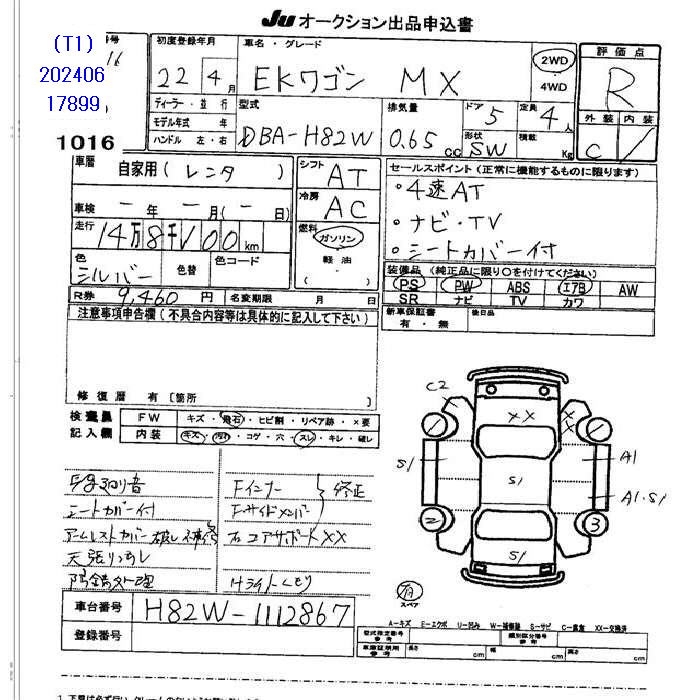 Ju オークション出品申込書
(T1)
202406
17899
番号
16
1016
初度登録年月
22 年 4 月
車名・グレード
EKワゴン MX
2WD
・
4WD
評価点
R
外装 内装
C
ディーラー・並行
モデル年式 年
ハンドル 左・右
型式
DBA-H82W
排気量
0.65 cc
ドア
5
形状
SW
定員
4 人
積載
Kg
車歴
自家用(レンタ)
車検
- 年 - 月(- 日)
走行
14万8千 00 km
色
シルバー
色替
色コード
シフト
AT
冷房
AC
燃料
ガソリン
・
軽油
セールスポイント(正常に機能するものに限ります)
・4速AT
・ナビ・TV
・シートカバー付
装備品(純正品に限り○を付けてください)
PS PW ABS エアB AW
SR ナビ TV カワ
新車保証書
有・無
後日品
R券 9,460 円 名変期限 月 日
注意事項申告欄(不具合内容等は具体的に記入して下さい)
修復歴 有〔箇所 〕
検査員
記入欄
FW キズ・飛石・ヒビ割・リペア跡・×要
内装 キズ・汚れ・コゲ・穴・スレ・キレ・破レ
シートカバー付
アームレストカバー破レ
Fインナー
Fサイドメンバー
修正
コアサポートXX
Hライトくもり
C2
XX
S1
A1
A1・S1
S1
S1
2
3
有
スペア
A-キズ E-エクボ U-凹み W-補修跡 S-サビ C-腐食 XX-交換済
車台番号 H82W-1112867
登録番号
型式指定番号
参考
類別区分番号
参考
車庫証明用
参考
長さ cm 幅 cm 高さ cm